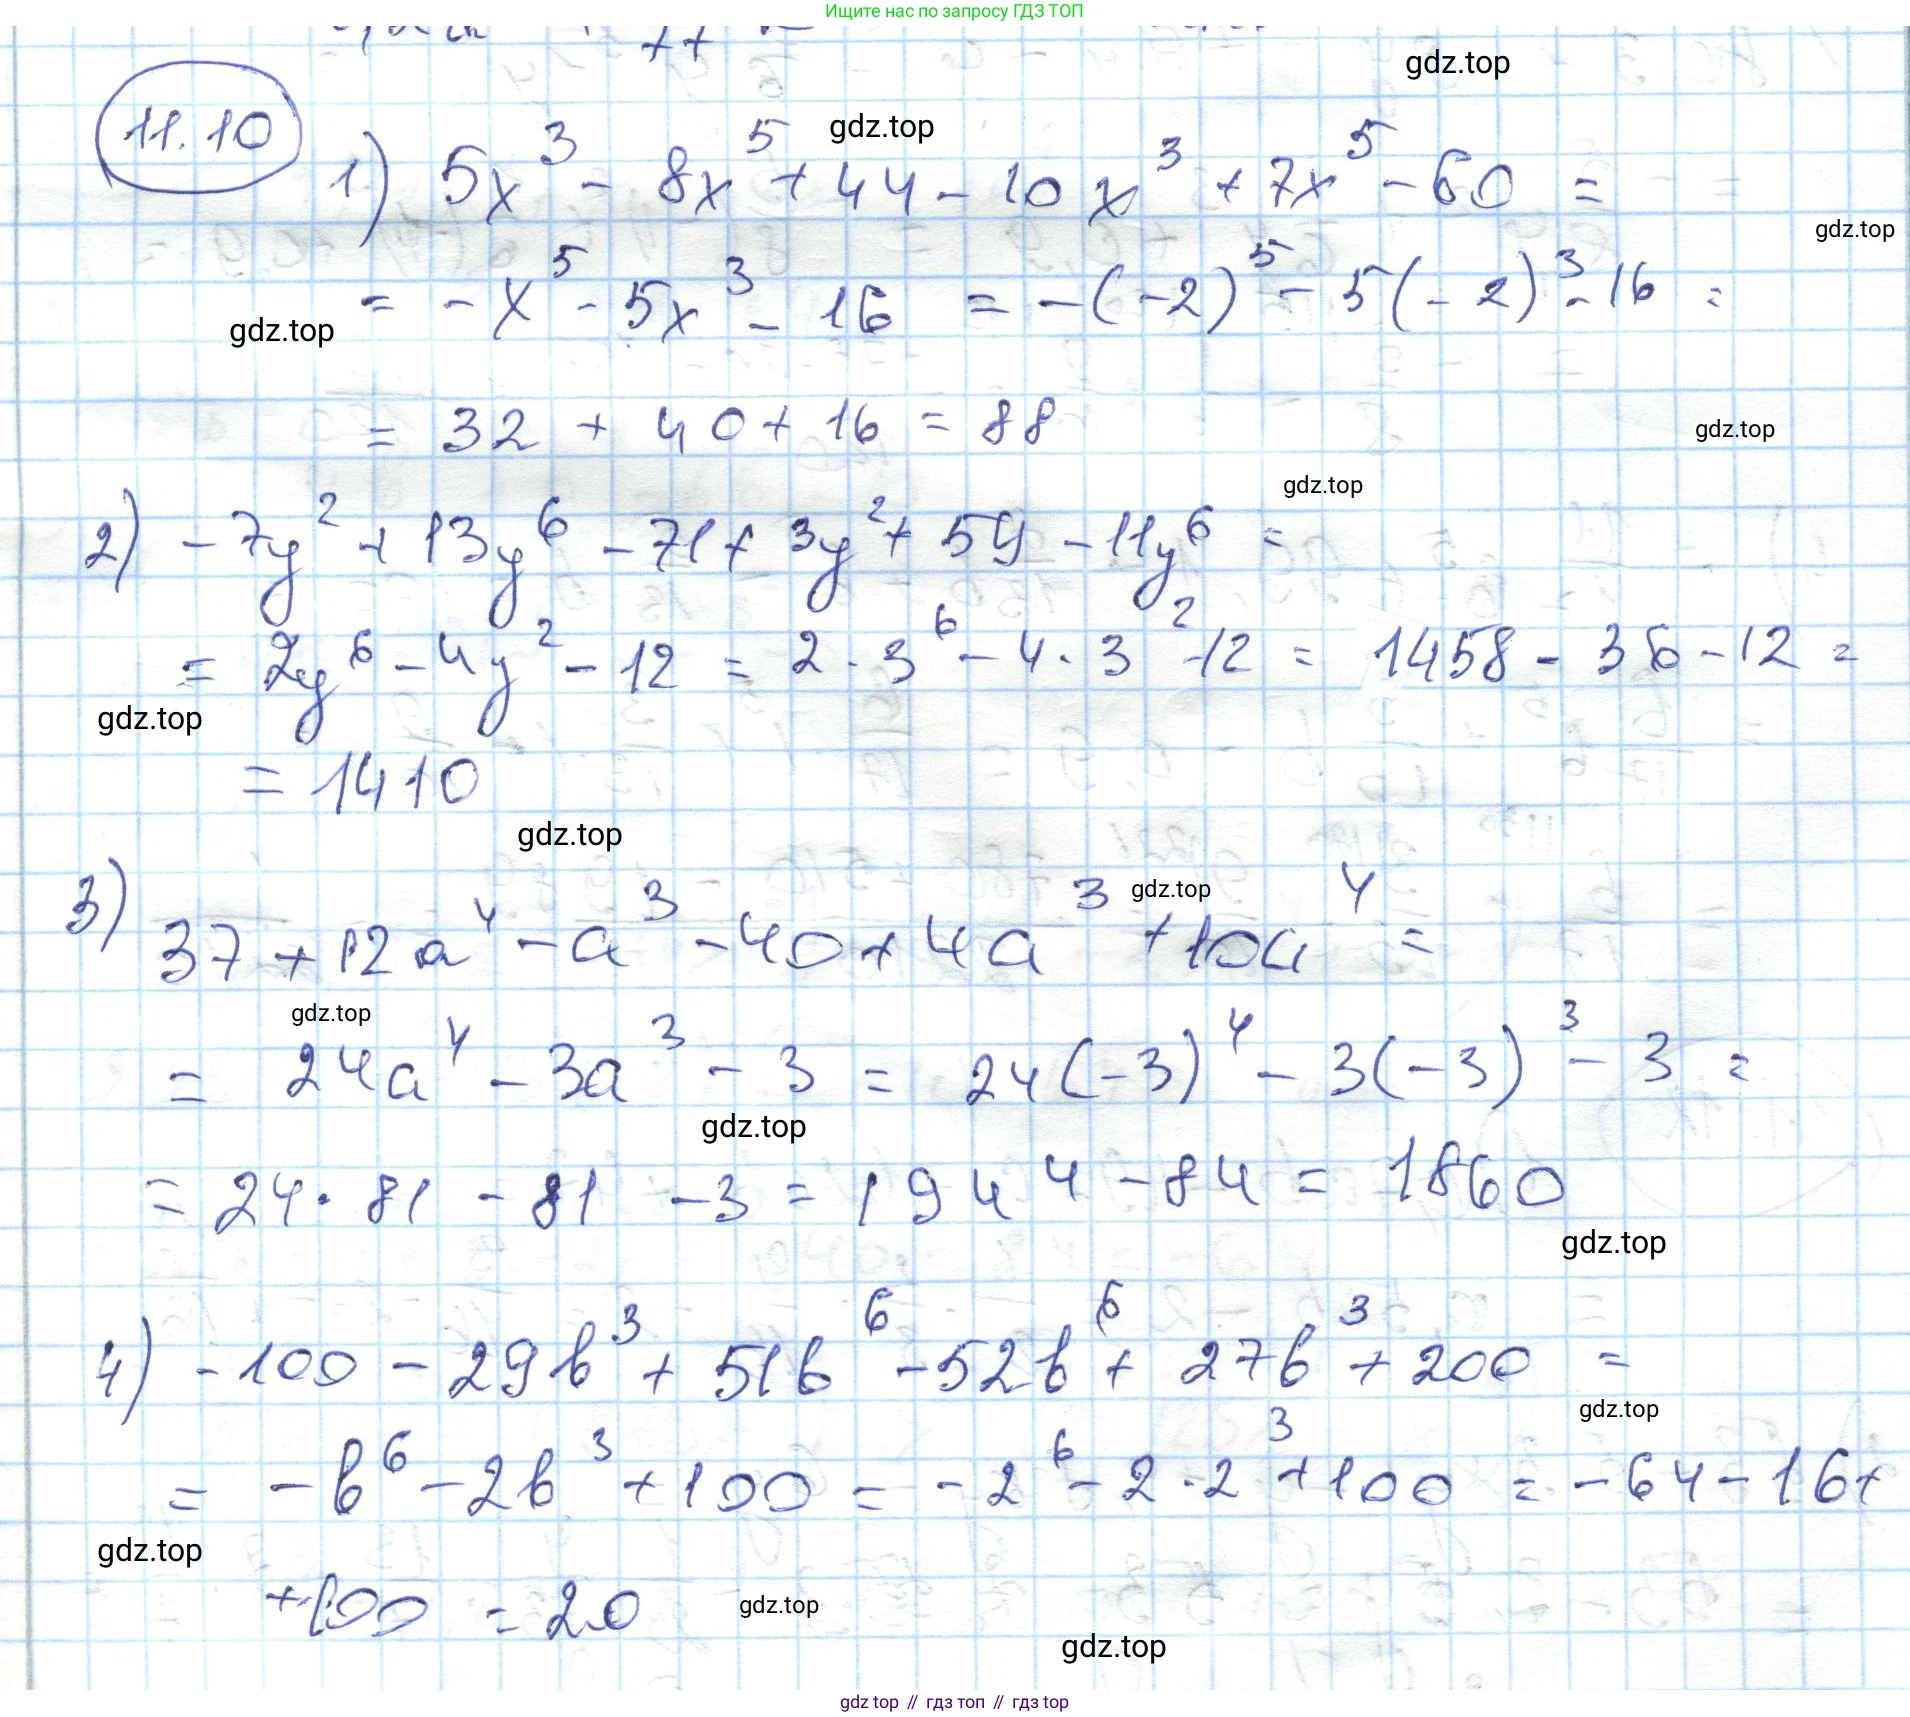 Ищите нас по запросу ГДЗ ТОП
gdz.top
11.10
gdz.top
1) 5x³ - 8x⁵ + 44 - 10x³ + 7x⁵ - 60 =
gdz.top
= -x⁵ - 5x³ - 16 = -(-2)⁵ - 5(-2)³ - 16 =
gdz.top
= 32 + 40 + 16 = 88
gdz.top
gdz.top
2) -7y² + 13y⁶ - 71 + 3y² + 59 - 11y⁶ =
= 2y⁶ - 4y² - 12 = 2 · 3⁶ - 4 · 3² - 12 = 1458 - 36 - 12 =
gdz.top
= 1410
gdz.top
gdz.top
3) 37 + 12a⁴ - a³ - 40 + 4a³ + 10a⁴ =
gdz.top
= 24a⁴ - 3a³ - 3 = 24(-3)⁴ - 3(-3)³ - 3 =
gdz.top
= 24 · 81 - 81 - 3 = 1944 - 84 = 1860
gdz.top
4) -100 - 29b³ + 51b⁶ - 52b⁶ + 27b³ + 200 =
gdz.top
= -b⁶ - 2b³ + 100 = -2⁶ - 2 · 2³ + 100 = -64 - 16 +
gdz.top
+ 100 = 20
gdz.top
gdz.top
gdz top // гдз топ // гдз top